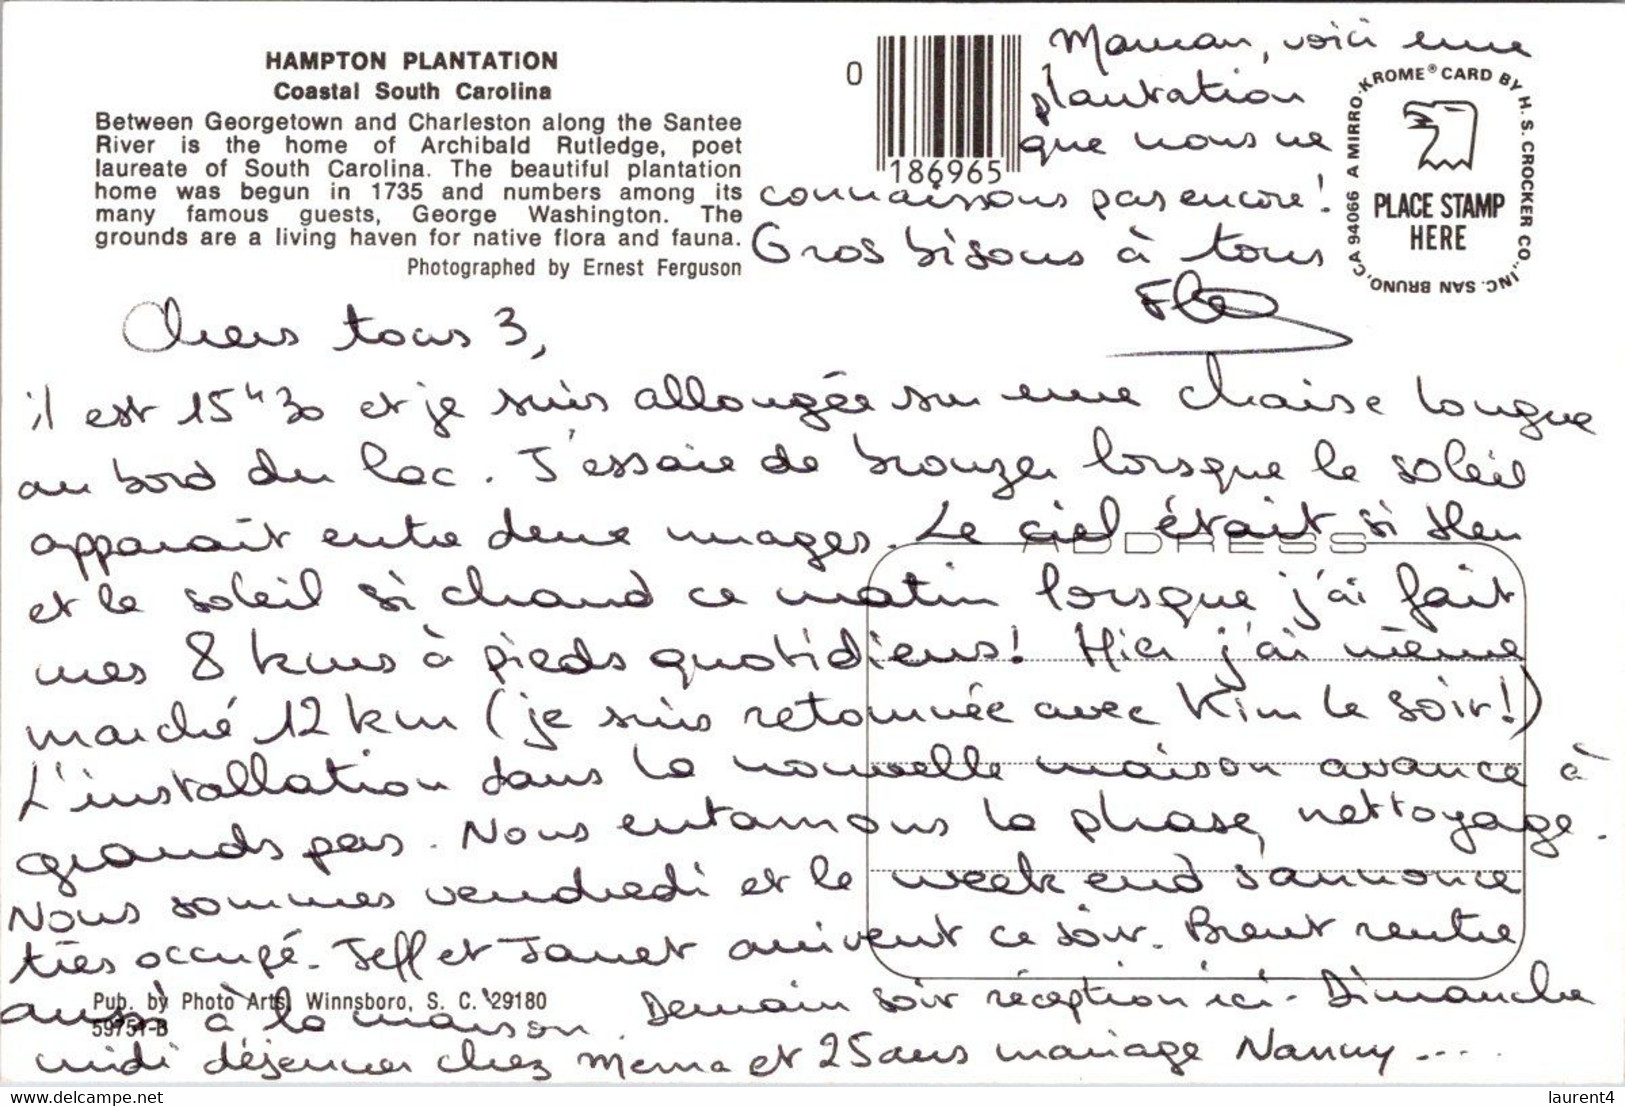 HAMPTON PLANTATION
Coastal South Carolina
Between Georgetown and Charleston along the Santee
River is the home of Archibald Rutledge, poet
laureate of South Carolina. The beautiful plantation
home was begun in 1735 and numbers among its
many famous guests, George Washington. The
grounds are a living haven for native flora and fauna.
Photographed by Ernest Ferguson
0
186965
A MIRRO-KROME® CARD BY H. S. CROCKER CO., INC. SAN BRUNO, CA 94066
PLACE STAMP
HERE
Maman, voici une
plantation
que nous ne
connaissons pas encore!
Gros bisous à tous
Chers tous 3,
il est 15h30 et je suis allongée sur une chaise longue
au bord du lac. J'essaie de bronzer lorsque le soleil
apparaît entre deux nuages. Le ciel était si bleu
ADDRESS
et le soleil si chaud ce matin lorsque j'ai fait
mes 8 kms à pieds quotidiens! Hier j'ai même
marché 12 km (je suis retournée avec Kim le soir!)
L'installation dans la nouvelle maison avance à
grands pas. Nous entamons la phase nettoyage.
Nous sommes vendredi et le week end s'annonce
très occupé. Jeff et Janet arrivent ce soir. Brent rentre
aussi à la maison. Demain soir réception ici. Dimanche
midi déjeuner chez Mema et 25 ans mariage Nancy ....
Pub. by Photo Arts, Winnsboro, S. C. 29180
59751-B
Copyright © By
laurent4